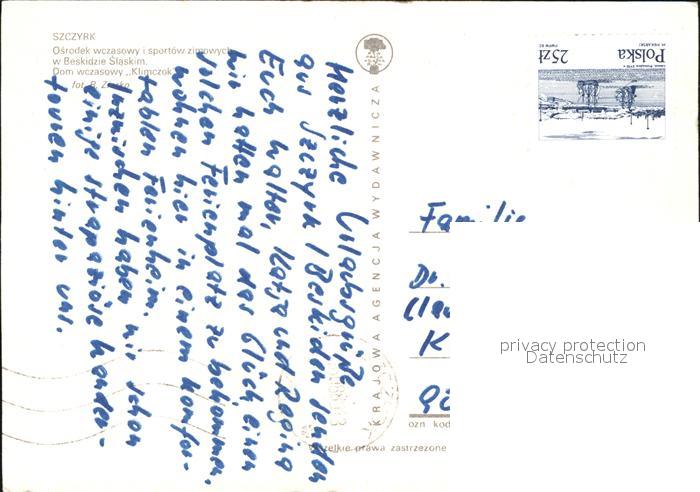 SZCZYRK
Ośrodek wczasowy i sportów zimowych
w Beskidzie Śląskim.
Dom wczasowy „Klimczok"
fot. B.
Herzliche Urlaubsgrüße
aus Szczyrk / Beskiden senden
Euch Walter, Katja und Regina
Wir hatten mal das Glück einen
solchen Ferienplatz zu bekommen.
wohnen hier in einem komfor-
tablen Ferienheim. Wir schon
Inzwischen haben
einige strapaziöse Wander-
touren hinter uns.
KRAJOWA AGENCJA WYDAWNICZA
Polska
25 ZŁ
Familie
Dr.
K
privacy protection
Datenschutz
ozn. kod
Wszelkie prawa zastrzeżone